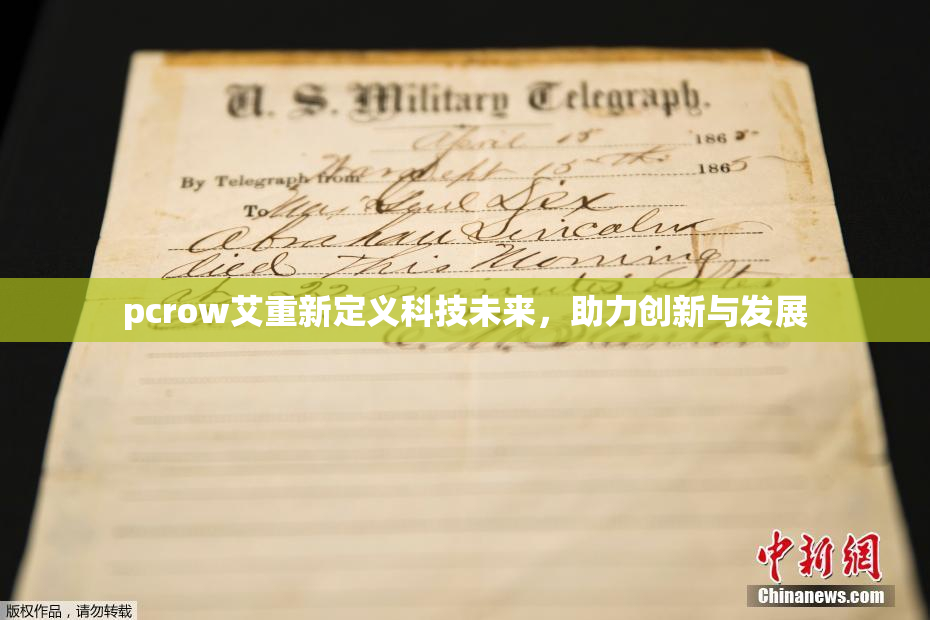 U. S. Military Telegraph.
April 15 1865
By Telegraph from War Dept 15th 1865
To Maj Genl Dix
Abraham Lincoln
died This Morning
at 22 minutes after
pcrow艾重新定义科技未来，助力创新与发展
E M Stanton
中新网
Chinanews.com
版权作品，请勿转载